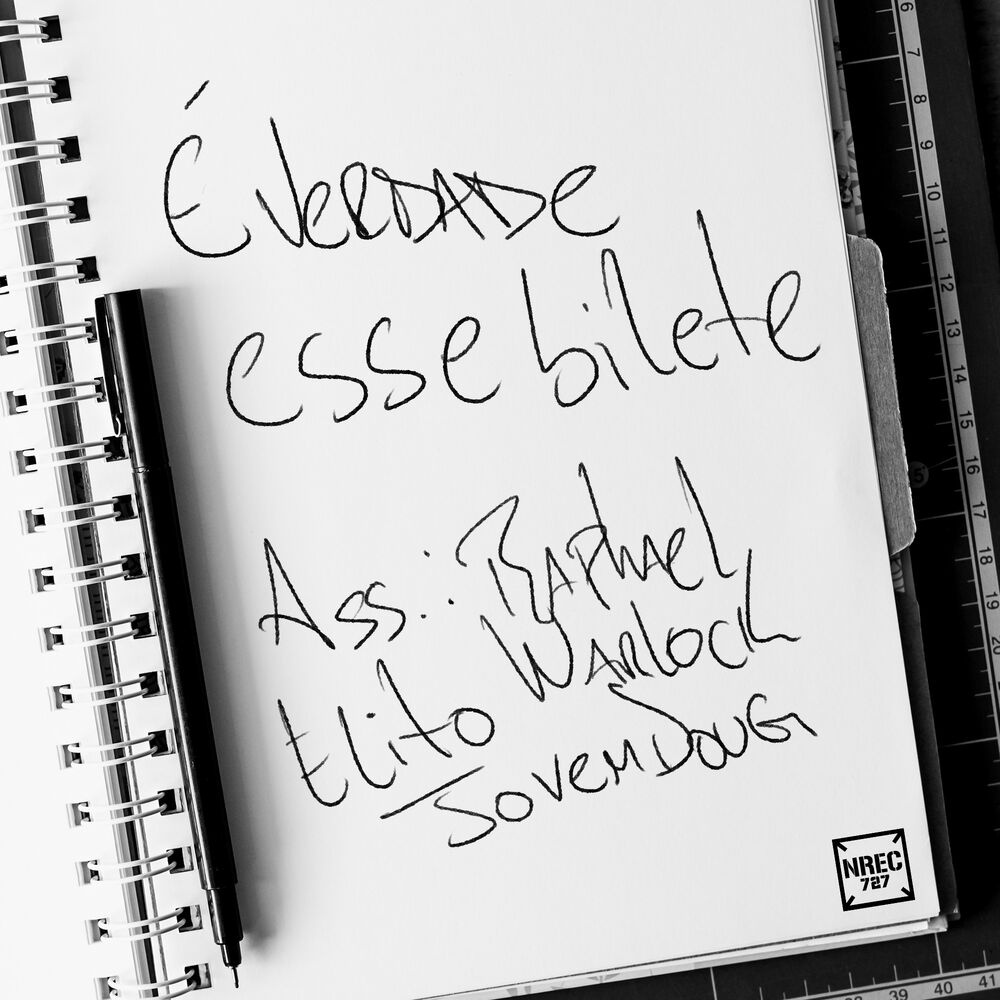 É verdade
esse bilete
Ass.: Raphael
Elito Warlock
Jovem Doug
NREC
727
6
7
8
9
10
11
12
13
14
15
16
17
18
19
20
5
39
40
41